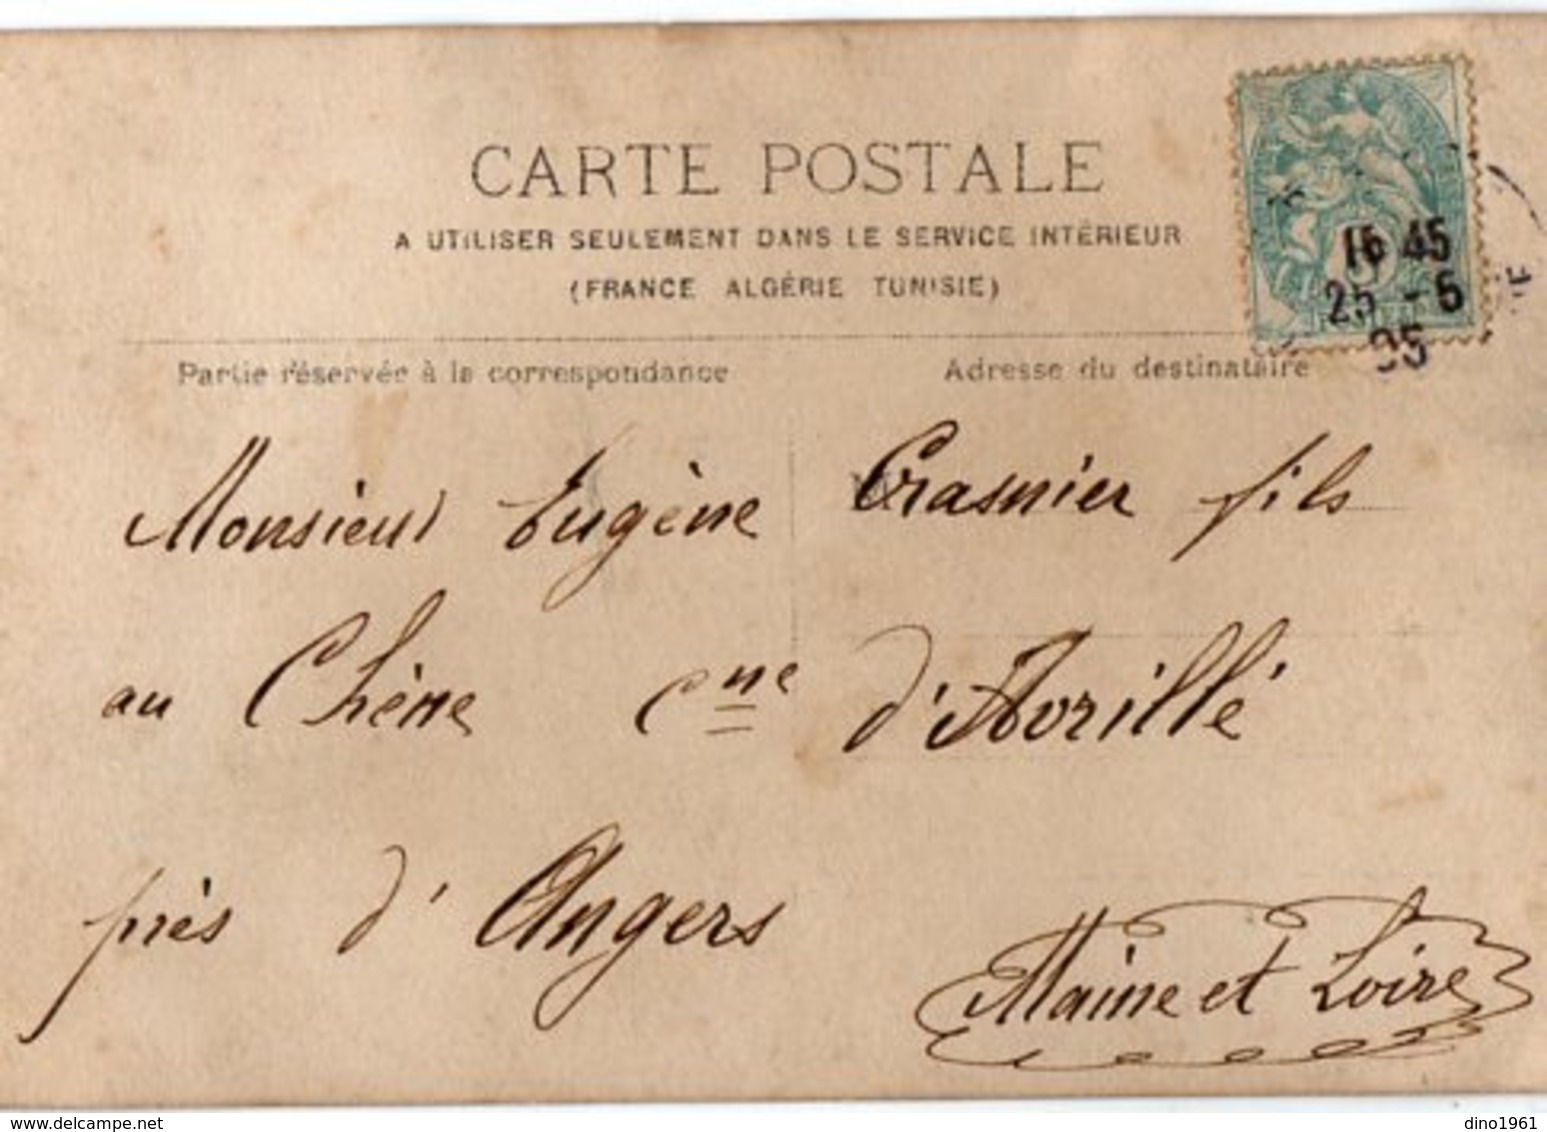 CARTE POSTALE
A UTILISER SEULEMENT DANS LE SERVICE INTÉRIEUR
(FRANCE ALGÉRIE TUNISIE)
Partie réservée à la correspondance
Adresse du destinataire
16 45
25 - 5
05
Monsieur Eugène Crasnier fils
au Chêne cne d'Avrillé
près d'Angers
Maine et Loire
delcampe.net
dino1961